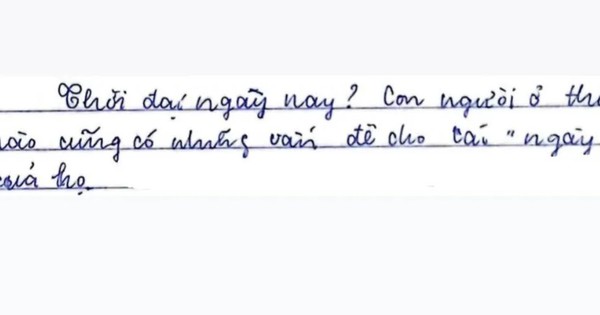 Thời đại ngày nay? Con người ở th
nào cũng có những vấn đề cho cái "ngày
của họ